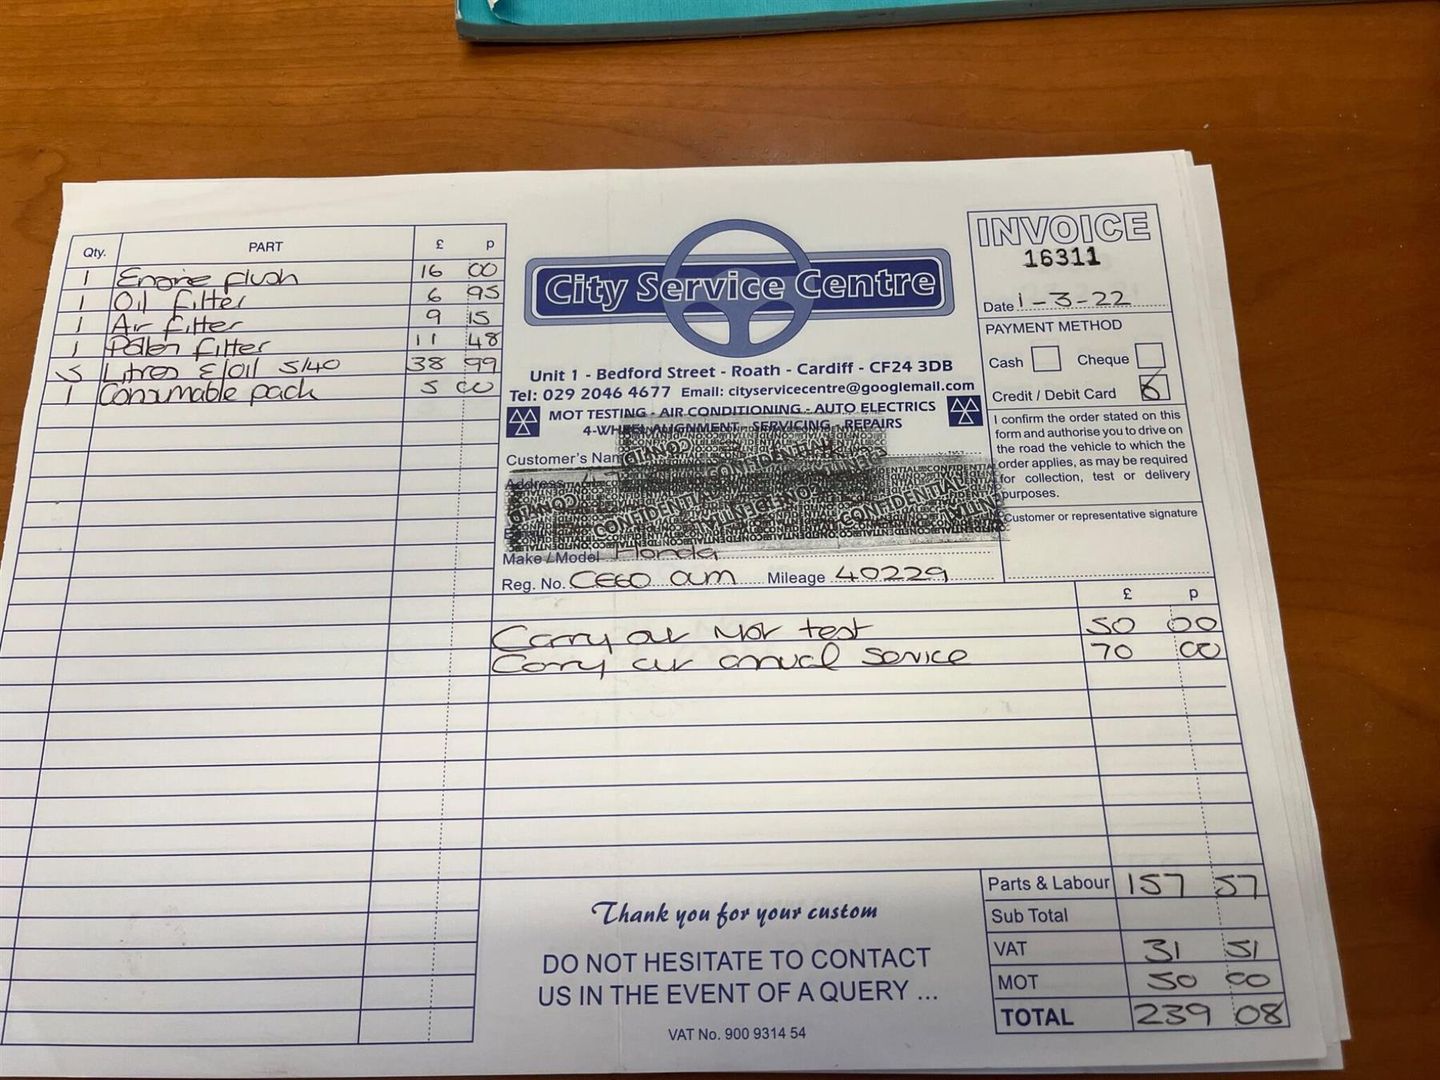 Qty. PART £ p
1 Engine flush 16 00
1 Oil filter 6 95
1 Air filter 9 15
1 Pollen filter 11 48
5 Litres E/Oil 5/40 38 99
1 Consumable pack 5 00
City Service Centre
Unit 1 - Bedford Street - Roath - Cardiff - CF24 3DB
Tel: 029 2046 4677 Email: cityservicecentre@googlemail.com
MOT TESTING - AIR CONDITIONING - AUTO ELECTRICS
4-WHEEL ALIGNMENT - SERVICING - REPAIRS
Customer's Nam
Address
CONFIDENTIAL
Make / Model Honda
Reg. No. CE60 Mileage 40229
INVOICE
16311
Date 1-3-22
PAYMENT METHOD
Cash Cheque
Credit / Debit Card
I confirm the order stated on this
form and authorise you to drive on
the road the vehicle to which the
order applies, as may be required
for collection, test or delivery
purposes.
Customer or representative signature
£ p
Carry out Mot test 50 00
Carry out annual service 70 00
Thank you for your custom
DO NOT HESITATE TO CONTACT
US IN THE EVENT OF A QUERY ...
VAT No. 900 9314 54
Parts & Labour 157 57
Sub Total
VAT 31 51
MOT 50 00
TOTAL 239 08